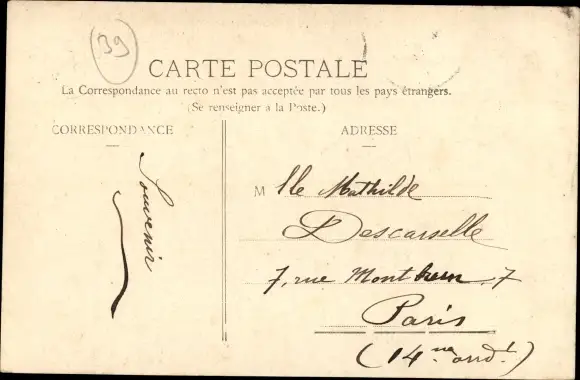 39
CARTE POSTALE
La Correspondance au recto n'est pas acceptée par tous les pays étrangers.
(Se renseigner à la Poste.)
CORRESPONDANCE
ADRESSE
Souvenir
M lle Mathilde
Descarselle
7, rue 7
Paris
(14me arrdt